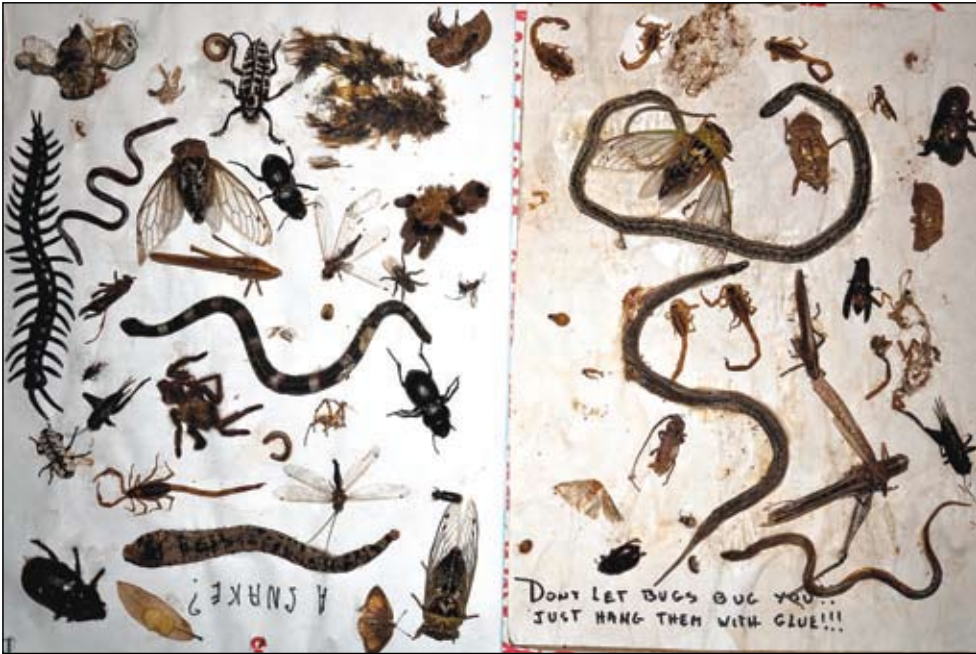 A SNAKE?
DONT LET BUGS BUG YOU..
JUST HANG THEM WITH GLUE!!!